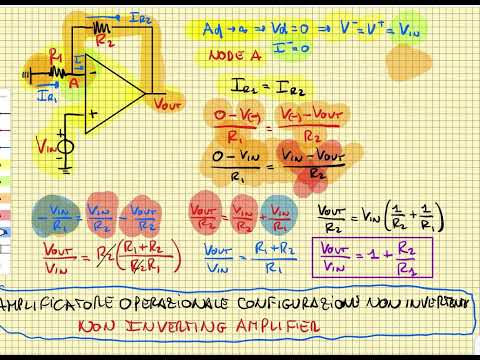 Ad → ∞ ⇒ Vd = 0 ⇒ V⁻ = V⁺ = VIN
I⁻ = 0
NODE A
IR2
R2
R1
A
I⁻
IR1
VOUT
VIN
IR1 = IR2
(0 − V(-))/R1 = (V(-) − VOUT)/R2
(0 − VIN)/R1 = (VIN − VOUT)/R2
−VIN/R1 = VIN/R2 − VOUT/R2
VOUT/R2 = VIN/R2 + VIN/R1
VOUT/R2 = VIN (1/R2 + 1/R1)
VOUT/VIN = R2 ((R1 + R2)/(R2 R1))
VOUT/VIN = (R1 + R2)/R1
VOUT/VIN = 1 + R2/R1
AMPLIFICATORE OPERAZIONALE CONFIGURAZIONE NON INVERTENTE
NON INVERTING AMPLIFIER